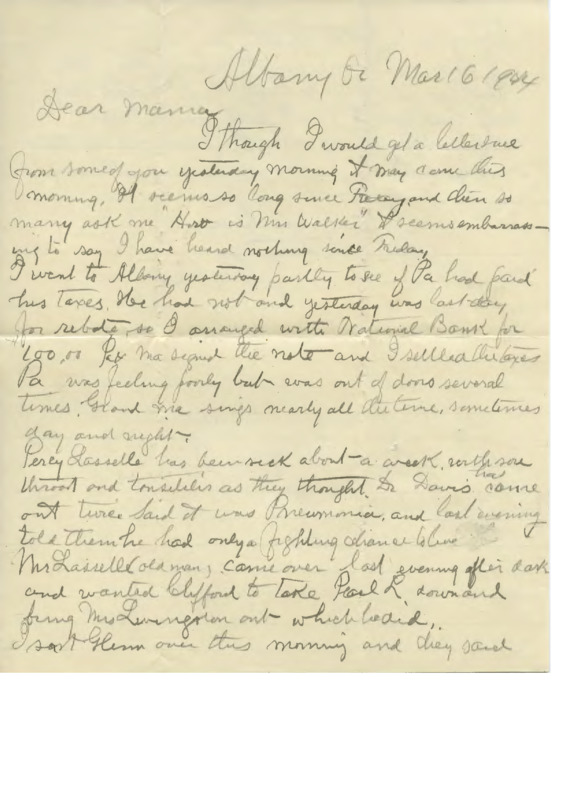 Albany Or Mar 16 1924
Dear Mama
I though I would get a letter
from some of you yesterday morning it may come this
morning. It seems so long since Friday and then so
many ask me "How is Mrs Walker" It seems embarrass-
ing to say I have heard nothing since Friday,
I went to Albany yesterday partly to see if Pa had paid
his taxes. He had not and yesterday was last day
for rebate, so I arranged with National Bank for
100.00 Pa & Ma signed the note and I settled the taxes
Pa was feeling poorly but was out of dors several
times. Grand ma sings nearly all the time, sometimes
day and night.
Percy Lasselle has been sick about a week, with sore
throat and tonselitis as they thought. Dr Davis has came
out twice Said it was Pneumonia, and last evening
told them he had only a fighting chance to live
Mr Lasselle (old man) came over last evening after dark
and wanted Clifford to take Pearl L down and
bring Mrs Livingston out which he did,.
I sent Glenn over this morning and they said